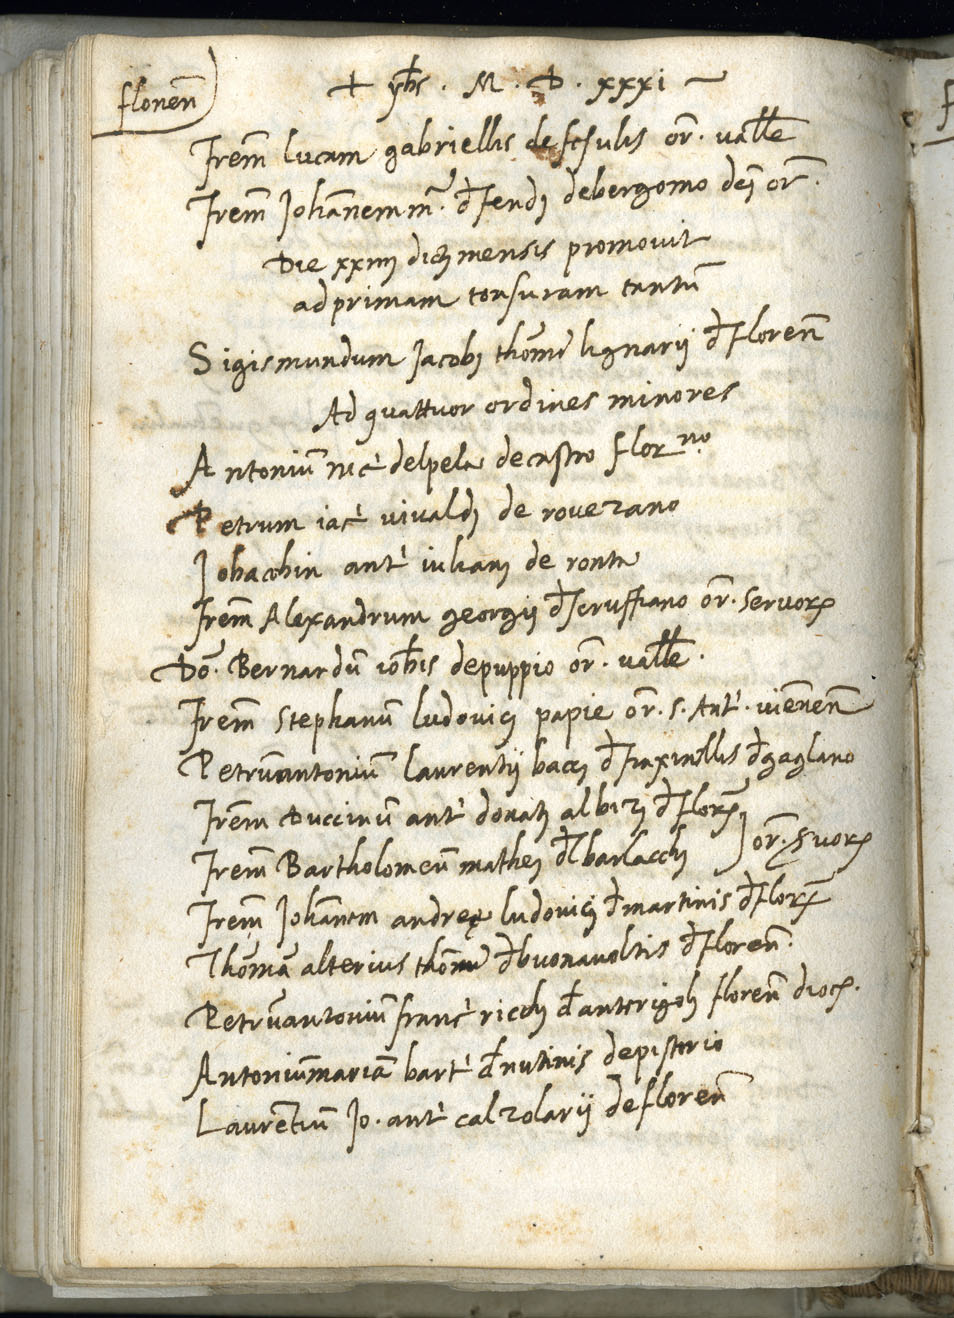 floren̄
+ yħs . M . D . xxxi
frem̄ lucam gabriellis de fesulis or̄. vallē
frem̄ Johan̄em m̄. đfendi debergomo dei or̄.
Die xxiiij dicti mensis promovit
ad primam tonsuram tantū
Sigismundum Jacobi thōme lignarij đ floren̄
Ad quattuor ordines minores
Antoniū nic̀ delpela decastro flor.no.
Petrum iac̀ vivaldi de rovezano
Johachin ant̀ iuliani de ronta
frem̄ Alexandrum georgij đ scruffiano or̄. Servorꝝ
Dō. Bernardū ioħis depuppio or̄. vallē.
frem̄ Stephanū ludovici papie or̄. s. Ant̀. vienen̄
Petrūantoniū laurentij bacci đ fraxinellis đ gaglano
frem̄ Duccinū ant̀ donati albizi đ florꝫ
frem̄ Bartholomeū mathei đl barlacchi or̄. Svorꝝ
frem̄ Johan̄em andreę ludovici đ martinis đ florꝫ
Thōmā alterius thōme đ buonavoltis đ floren̄.
Petrūantoniū franc̀ ricchi đ anterigoli floren̄ dioc̄.
Antoniūmariā bart̀ đ nutinis depistorio
Laurētiū Jo. ant̀ calzolarij de floren̄